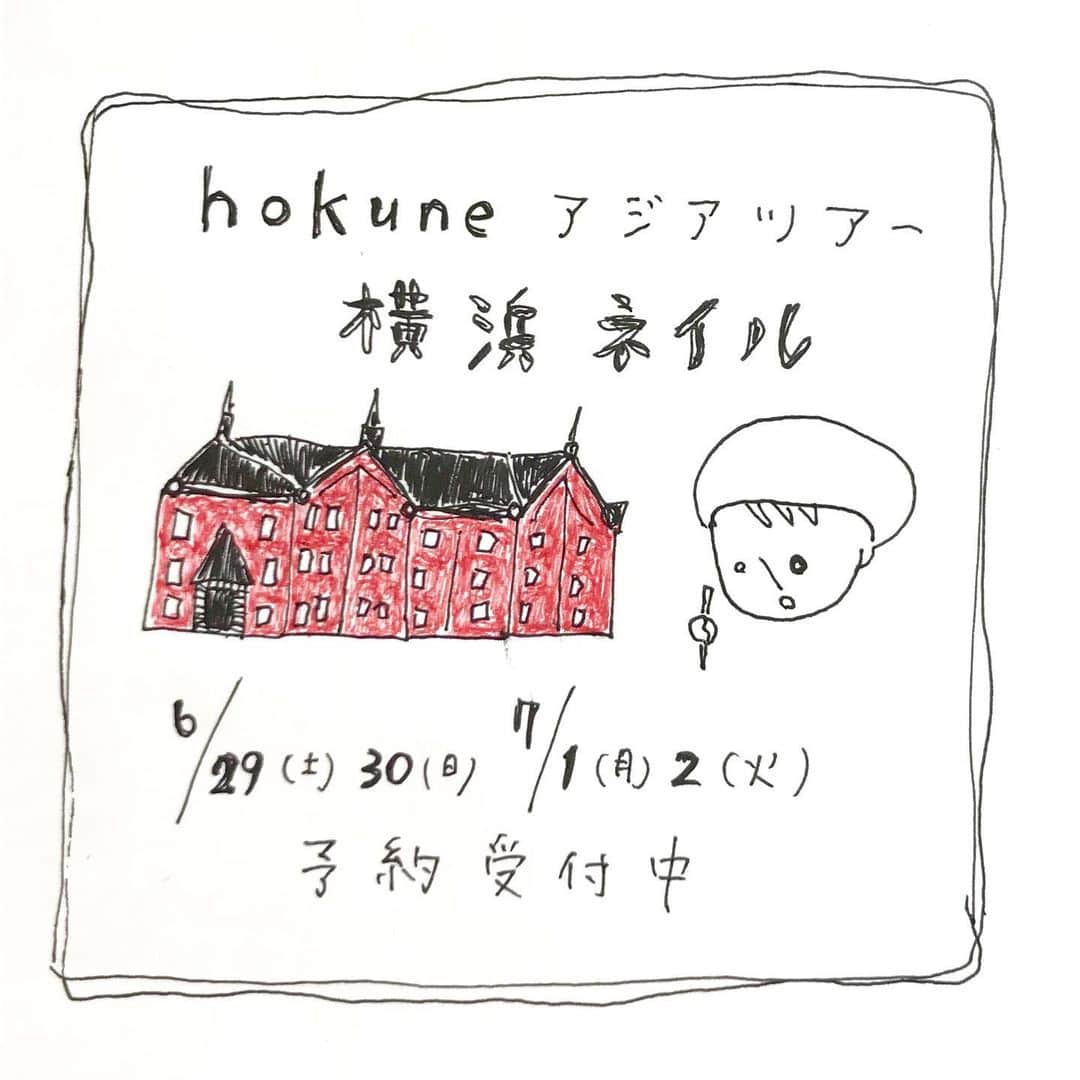 hokune アジアツアー
横浜ネイル
6/29(土)30(日) 7/1(月)2(火)
予約受付中